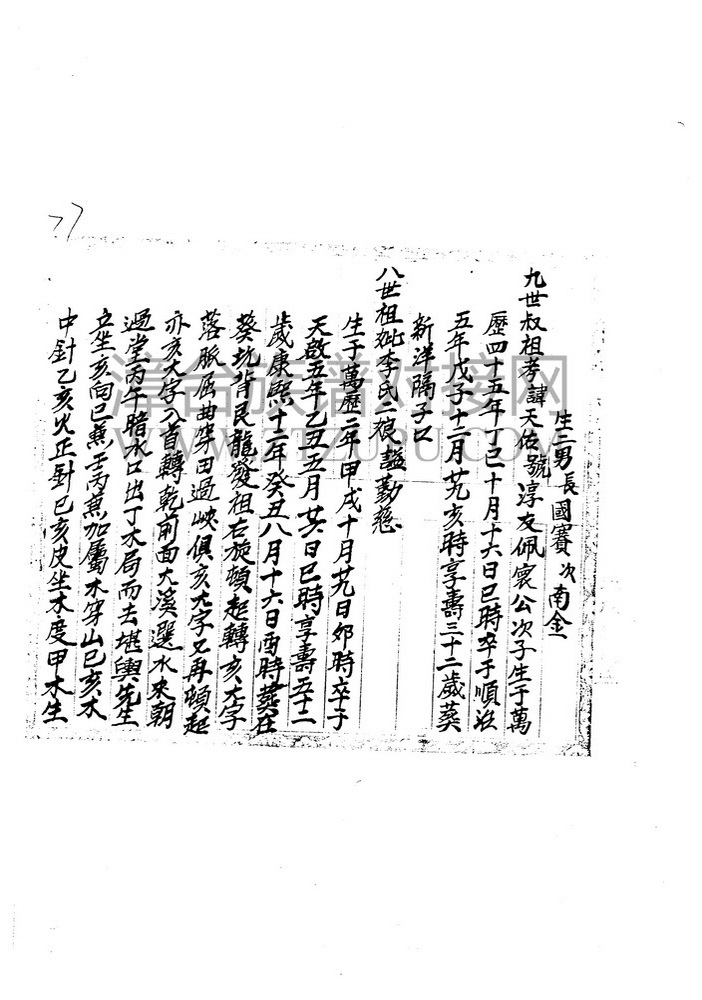 77
生二男長國賽次南金
九世叔祖考諱天佑號淳友佩寰公次子生于萬
歷四十五年丁巳十月十六日巳時卒于順治
五年戊子十二月廿九亥時享壽三十二歲葵
新洋隔子口
八世祖妣李氏二娘謚勤慈
生于萬歷二年甲戌十月廿九日夘時卒于
天啟五年乙丑五月廿六日巳時享壽五十二
歲康熙十二年癸丑八月十六日酉時葵在
葵坑背艮龍發祖右旋頓起轉亥大字
落脈屈曲穿田過峽俱亥大字又再頓起
亦亥大字入首轉乾前面大溪選水来朝
過堂丙午暗水口出丁木局而去堪輿先生
立坐亥向巳蕉壬丙蕉加屬木穿山巳亥木
中針乙亥火正針巳亥皮坐木度甲木生
清合族譜对接网
WWW.1TZUPU.COM